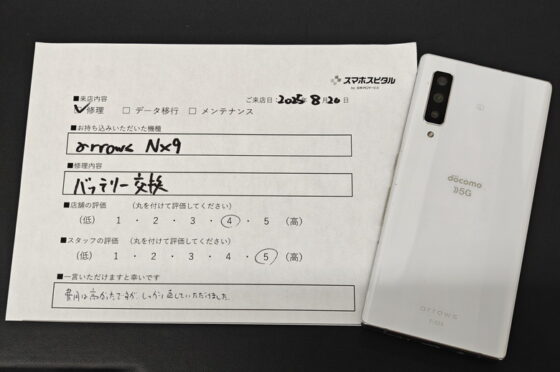 スマホスピタル
■来店内容
ご来店日：2025年8月20日
✓修理 □ データ移行 □ メンテナンス
■お持ち込みいただいた機種
arrows NX9
■修理内容
バッテリー交換
■店舗の評価 （丸を付けて評価してください）
（低） 1 ・ 2 ・ 3 ・ 4 ・ 5 （高）
■スタッフの評価 （丸を付けて評価してください）
（低） 1 ・ 2 ・ 3 ・ 4 ・ 5 （高）
■一言いただけますと幸いです
費用は高かったですが、しっかり直していただけました
docomo
5G
arrows